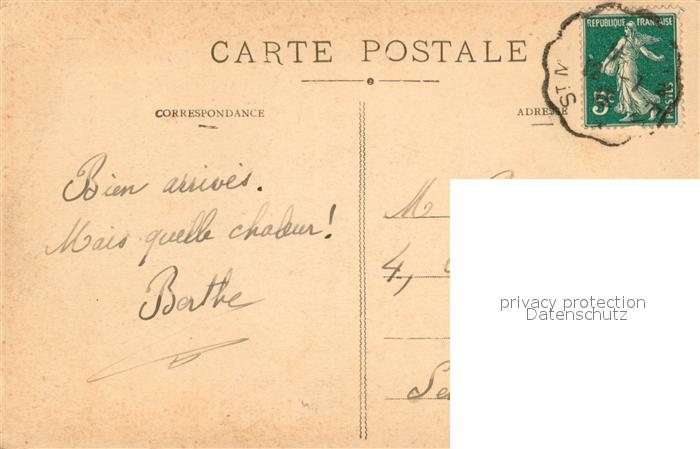 CARTE POSTALE
CORRESPONDANCE
ADRESSE
REPUBLIQUE FRANÇAISE
POSTES
5
Bien arrivés.
Mais quelle chaleur!
Berthe
M
4,
privacy protection
Datenschutz